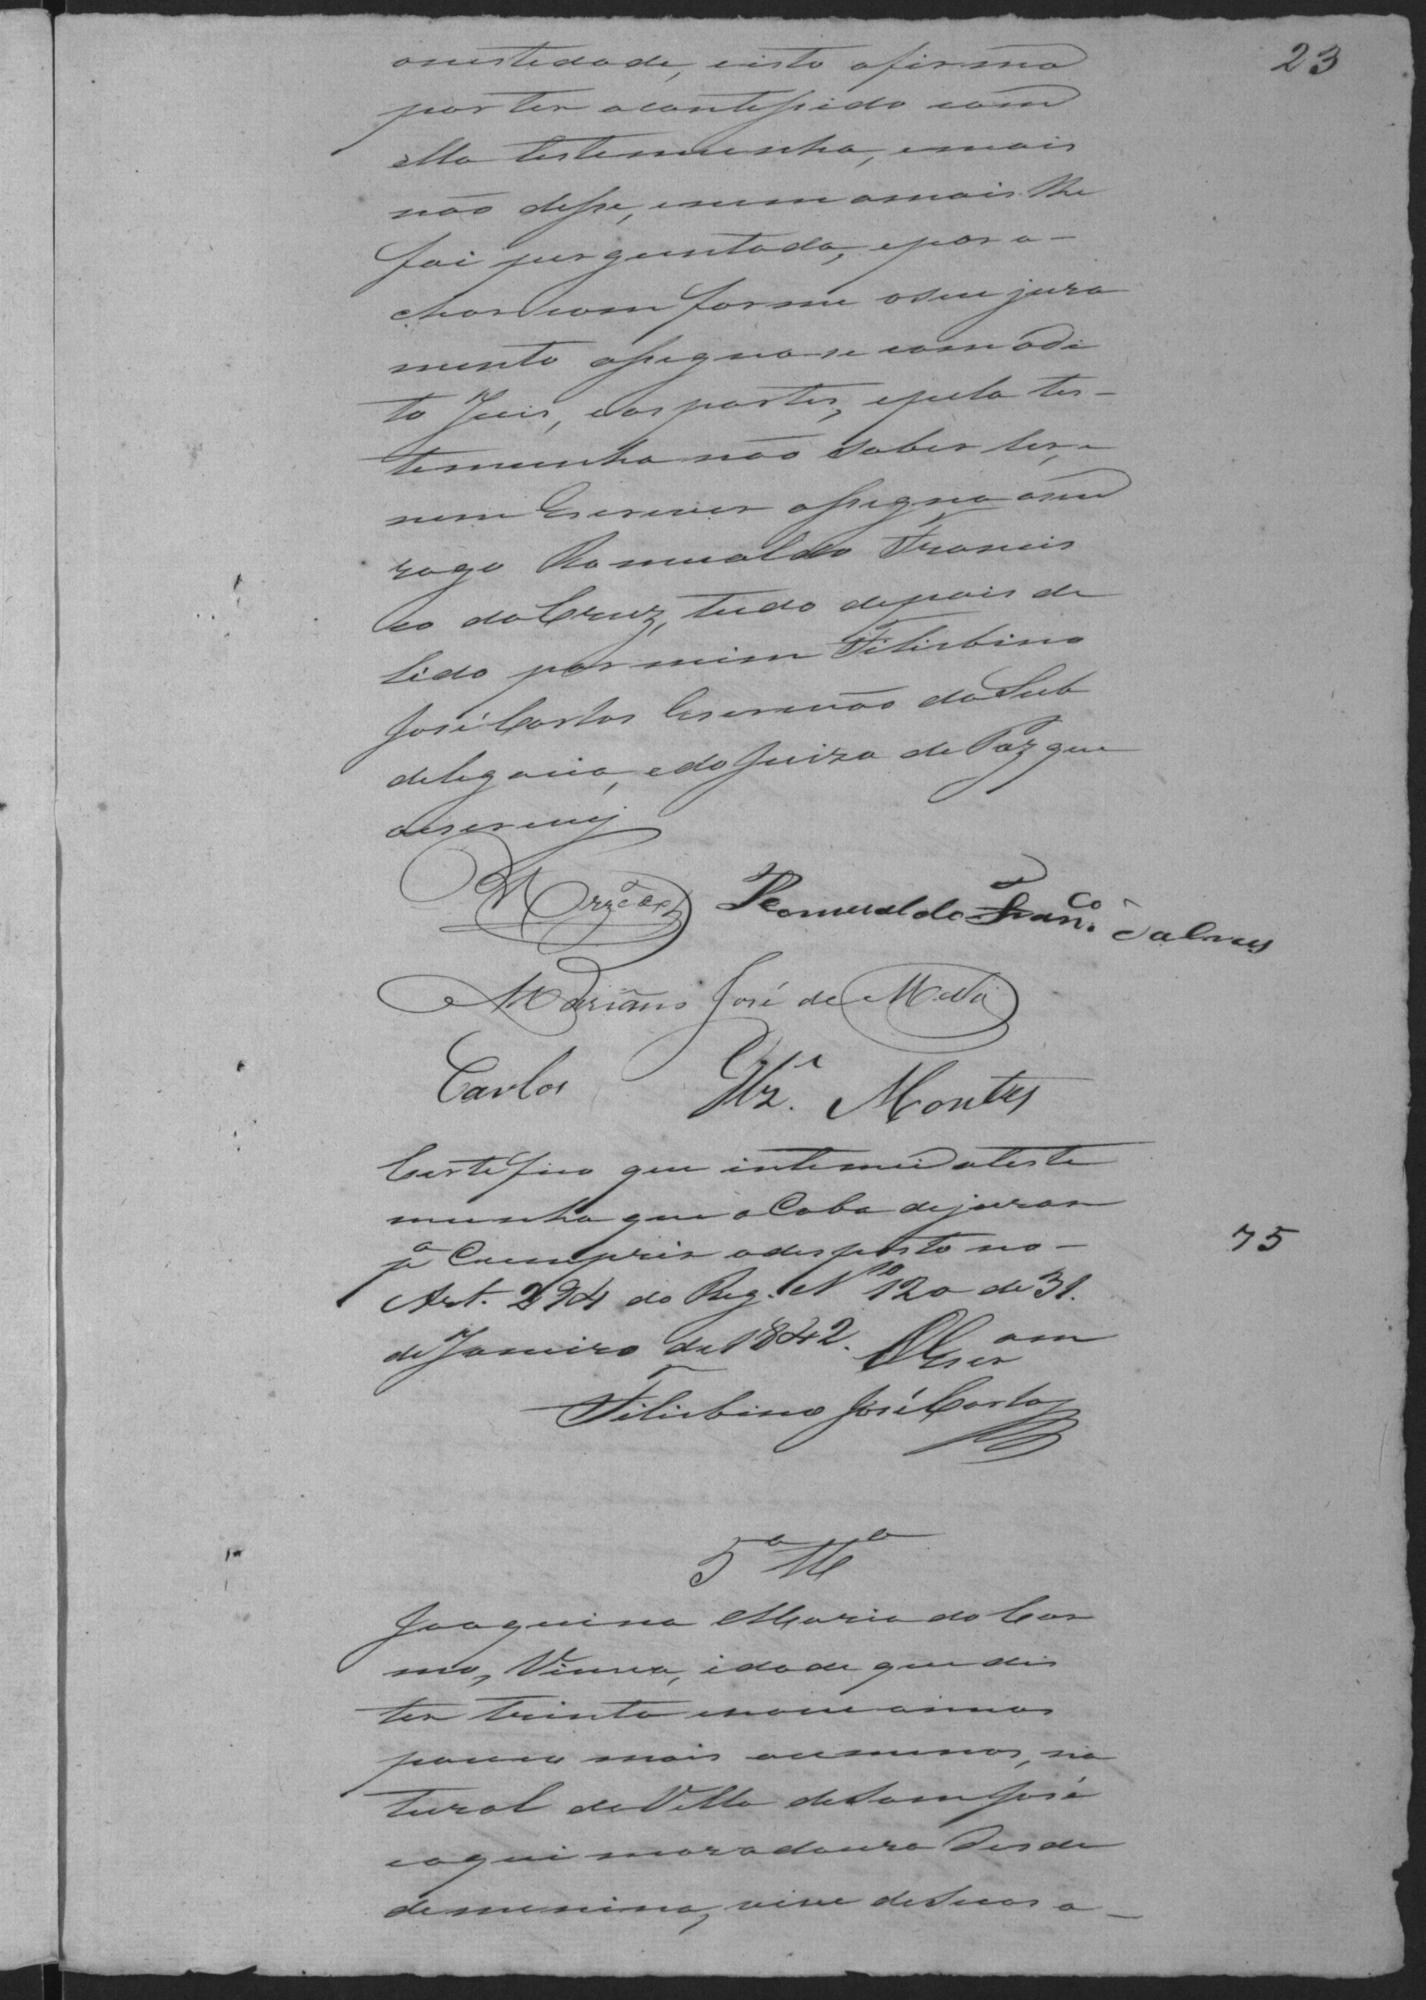 23
onestedade, eisto afirma
por ter acontessido com
ella testemunha, emais
não desse, enem amais lhe
foi perguntado, epor a-
char com forme oseu jura
mento assegna-se com odi
to Juis, eas partes, epela tes-
temunha não saber ler,
nem Escrever assegna aseu
rogo Romualdo Francis
co da Cruz, tudo depois de
lido por mim Felisbino
José Carlos Escrevão da Sub
delegacia, edo Juizo de Paz que
oescrevy
Romualdo Fran.co
Mariano José de
Carlos Montes
Certéfico que intemei ateste
munha que acaba dejurar
pa Cumprir odesposto no-
Art. 294 do Reg. No 120 de 31.
de Janeiro de 1842.
75
Felisbino José Carlos
5a Ta
Joaquina Maria do Car
mo, Viuva, idade que dis
ter trinta enove annos
pouco mais oumenos, na
tural da Villa de Sam José
eaqui moradoura desde
demenina, vive de suas a-